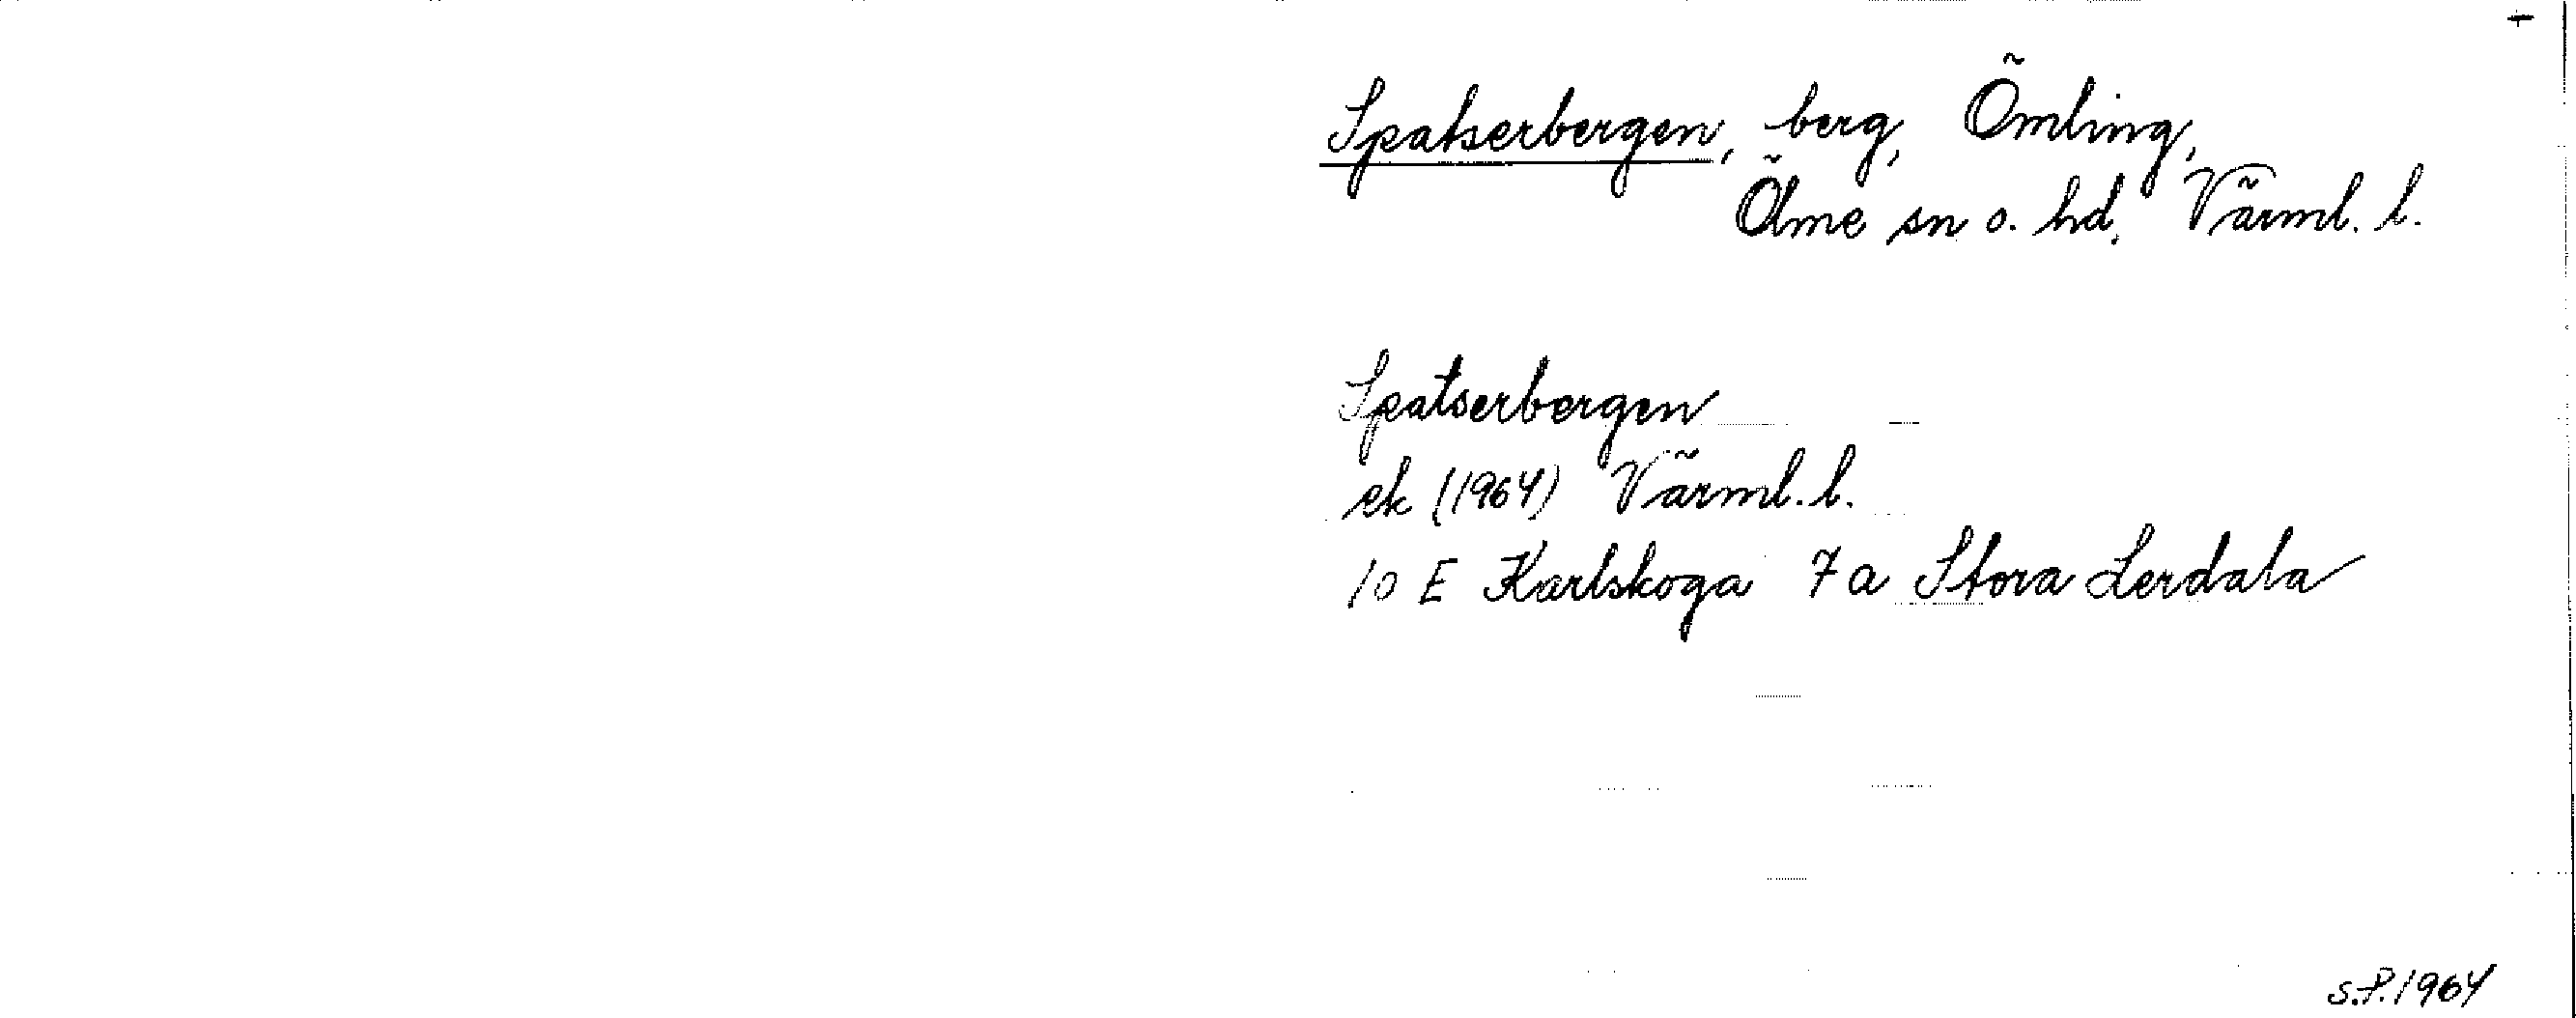 Spatserbergen, berg, Ömling,
Ölme sn o. hd, Värml. l.
Spatserbergen
ek (1964) Värml. l.
10 E Karlskoga 7 a Stora Lerdala
S.P. 1964